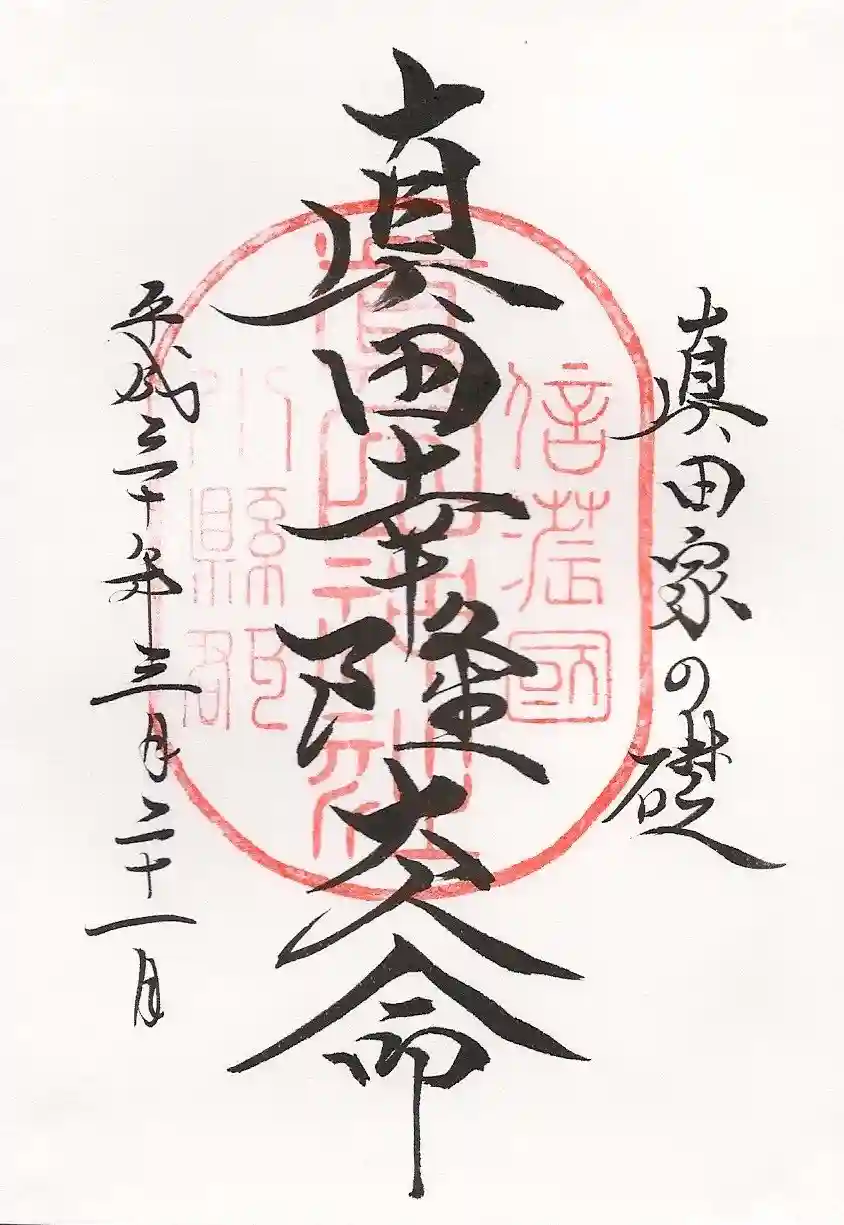 眞田家の礎
眞田幸隆大人命
平成三十年三月二十一日
信濃國
眞田神社
小縣郡